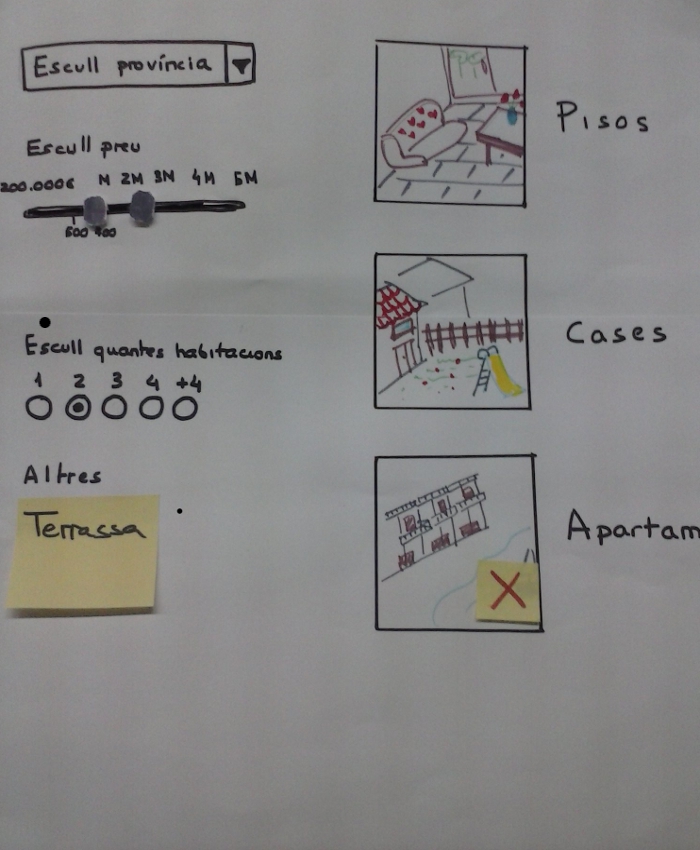 Escull província
Escull preu
200.000€ M 2M 3N 4M 5M
600 900
Escull quantes habitacions
1 2 3 4 +4
Altres
Terrassa
Pisos
Cases
X
Apartam